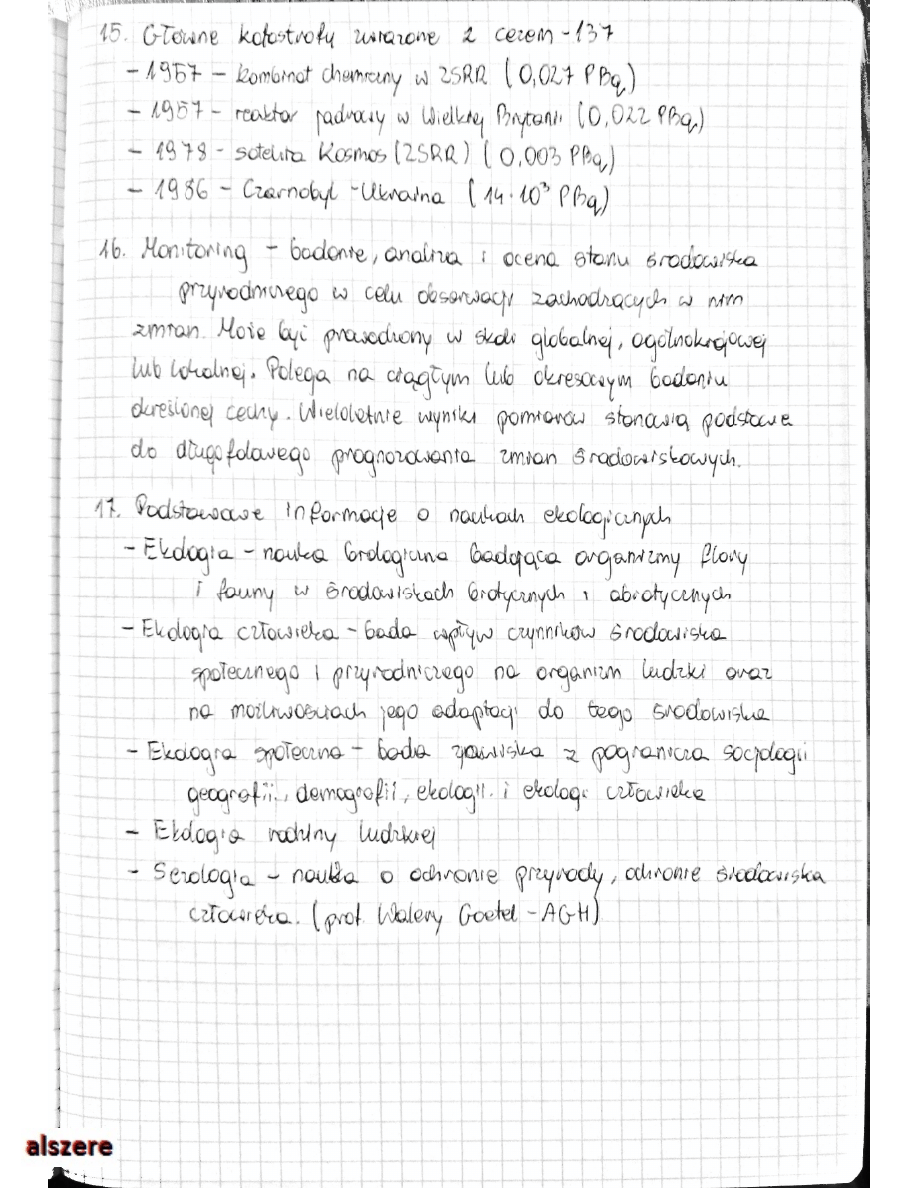 15. Główne katastrofy związane z cezem-137
- 1957 - kombinat chemiczny w ZSRR (0,027 PBq)
- 1957 - reaktor jądrowy w Wielkiej Brytanii (0,022 PBq)
- 1978 - satelita Kosmos (ZSRR) (0,003 PBq)
- 1986 - Czarnobyl - Ukraina (14·10³ PBq)
16. Monitoring - badanie, analiza i ocena stanu środowiska
przyrodniczego w celu obserwacji zachodzących w nim
zmian. Może być prowadzony w skali globalnej, ogólnokrajowej
lub lokalnej. Polega na ciągłym lub okresowym badaniu
określonej cechy. Wieloletnie wyniki pomiarów stanowią podstawę
do długofalowego prognozowania zmian środowiskowych.
17. Podstawowe informacje o naukach ekologicznych
- Ekologia - nauka biologiczna badająca organizmy flory
i fauny w środowiskach biotycznych i abiotycznych
- Ekologia człowieka - bada wpływ czynników środowiska
społecznego i przyrodniczego na organizm ludzki oraz
na możliwościach jego adaptacji do tego środowiska
- Ekologia społeczna - bada zjawiska z pogranicza socjologii
geografii, demografii, ekologii i ekologi człowieka
- Ekologia rodziny ludzkiej
- Sozologia - nauka o ochronie przyrody, ochronie środowiska
człowieka. (prof. Walery Goetel - AGH)
alszere